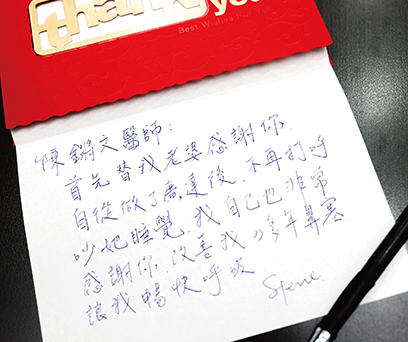 thank
you
Best Wishes
陳鏘文醫師：
首先替我老婆感謝你.
自從做了廉達後.不再打呼
吵她睡覺.我自己也非常
感謝你.改善我の多年鼻塞
讓我暢快呼吸
Steve.